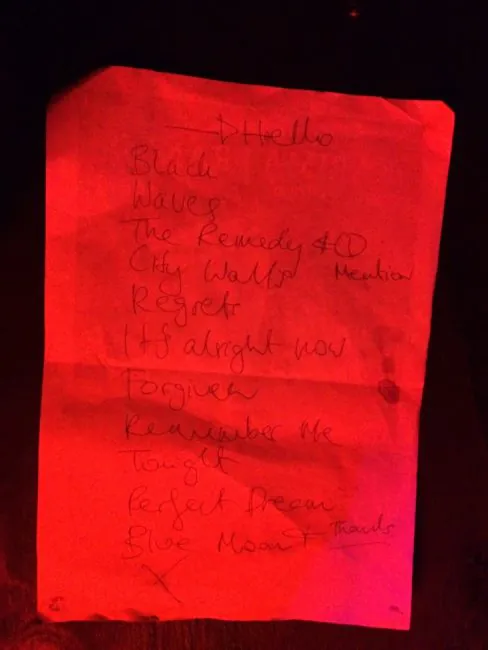 → Hello
Black
Waves
The Remedy
City Walls Mention
Regrets
It's alright now
Forgiven
Remember Me
Tonight
Perfect Dream
Blue Moon + Thanks
X